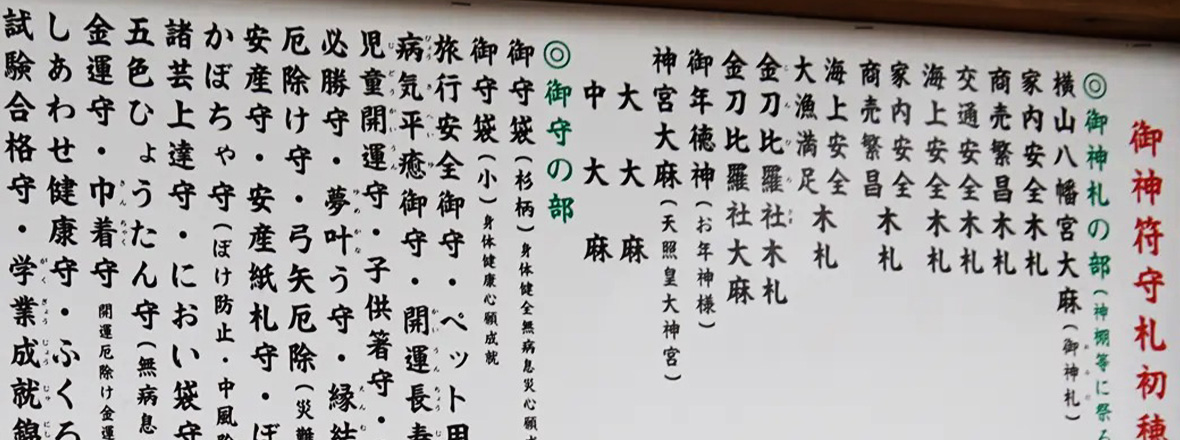 御神符守札初穂
◎御神札の部(神棚等に祭る
横山八幡宮大麻(御神札)
家内安全木札
商売繁昌木札
交通安全木札
海上安全木札
家内安全
商売繁昌 木札
海上安全
大漁満足 木札
金刀比羅社木札
金刀比羅社大麻
御年徳神(お年神様)
神宮大麻(天照皇大神宮)
大大麻
中大麻
◎御守の部
御守袋(杉柄)身体健全無病息災心願成
御守袋(小)身体健康心願成就
旅行安全御守・ペット用
病気平癒御守・開運長寿
児童開運守・子供箸守・
必勝守・夢叶う守・縁結
厄除け守・弓矢厄除(災難
安産守・安産紙札守・ぼ
かぼちゃ守(ぼけ防止・中風除
諸芸上達守・におい袋守
五色ひょうたん守(無病息
金運守・巾着守 開運厄除け金運
しあわせ健康守・ふくろ
試験合格守・学業成就錦